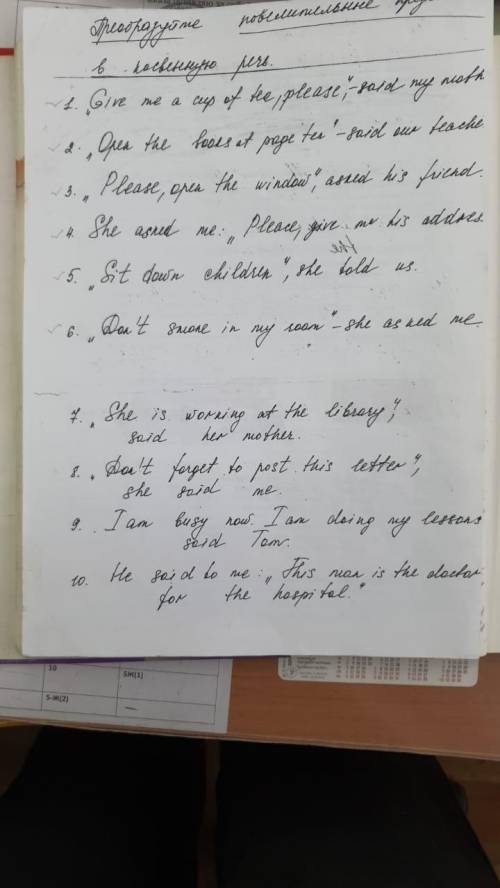 Преобразуйте повелительные
в косвенную речь.
1. „Give me a cup of tee, please", - said my moth
2. „Open the books at page ten" - said our teache
3. „Please, open the window", asked his friend.
4. She asked me: „Please, give me his addres.
the
5. „Sit down children", she told us.
6. „Don't smoke in my room" - she asked me.
7. „She is working at the library",
said her mother.
8. „Don't forget to post this letter",
she said me.
9. I am busy now. I am doing my lessons
said Tom.
10. He said to me: „This man is the doctor
for the hospital."
10
5Ж(1)
5-Ж(2)